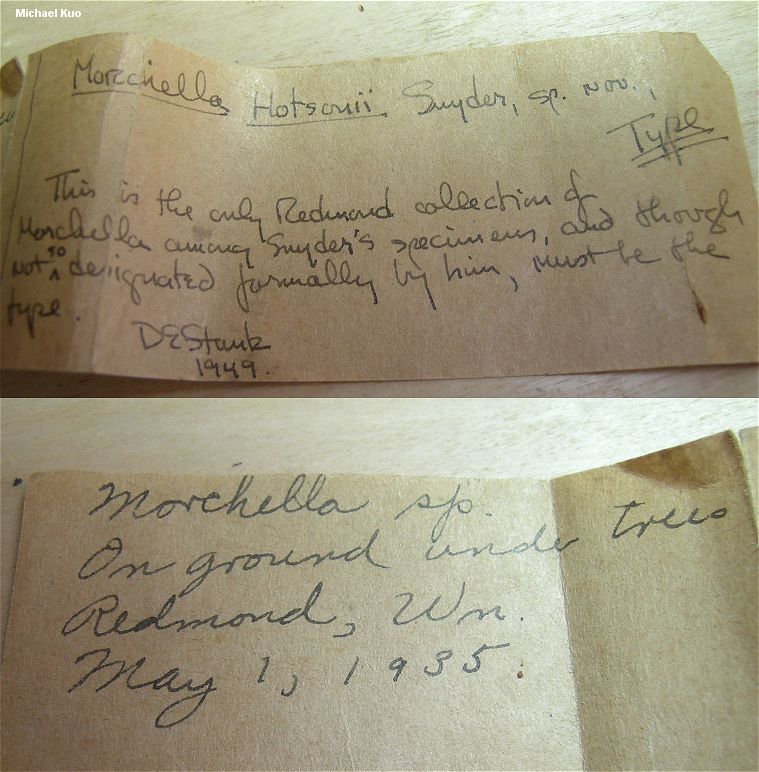 Michael Kuo
Morchella Hotsonii Snyder, sp. nov.,
Type
This is the only Redmond collection of
Morchella among Snyder's specimens, and though
not so designated formally by him, must be the
type.
DEStuntz
1949.
Morchella sp.
On ground under trees
Redmond, Wn.
May 1, 1935.